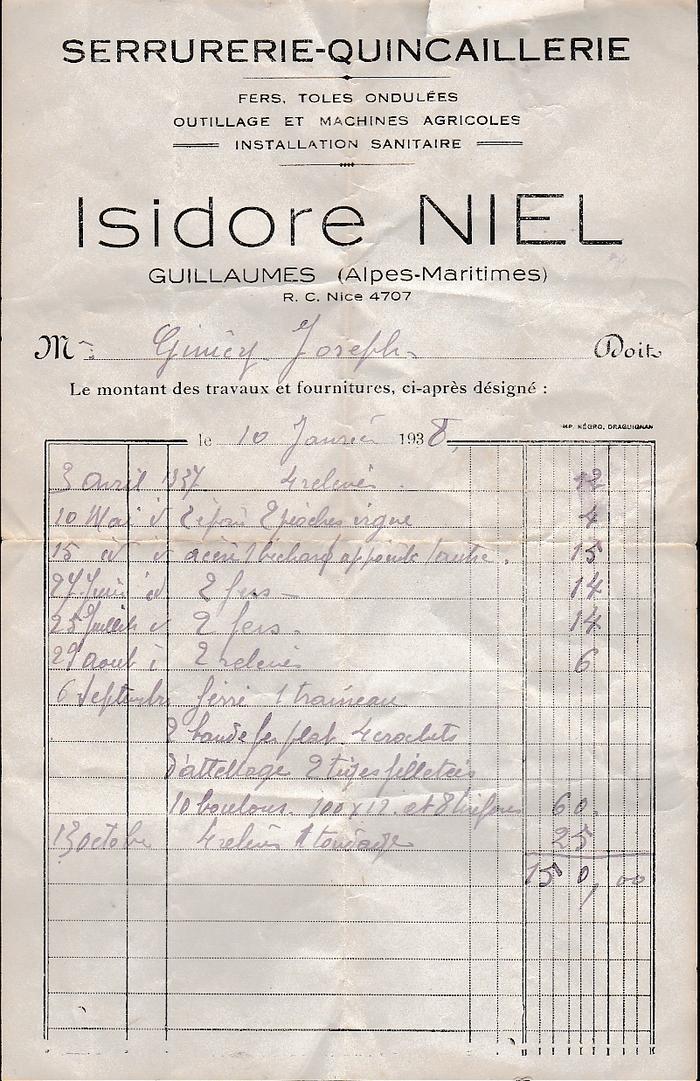 SERRURERIE-QUINCAILLERIE
FERS, TOLES ONDULÉES
OUTILLAGE ET MACHINES AGRICOLES
INSTALLATION SANITAIRE
Isidore NIEL
GUILLAUMES (Alpes-Maritimes)
R. C. Nice 4707
M Joseph Doit
Le montant des travaux et fournitures, ci-après désigné :
IMP. NÉGRO, DRAGUIGNAN
le 10 Janvier 1938,
3 avril 1937 4 relevés 12
10 Mai d 2 pioches 4
15 d d 1 bechard appointé 1 autre. 15
27 Juin d 2 fers 14
25 Juillet d 2 fers 14
29 aout 2 relevés 6
6 septembre ferré 1 traineau
2 bande fer plat 4 crochets
d'attellage 2 tiges filletées
10 boulons 100 x 12 et 8 60
13 octobre 4 relevés 1 25
150,00